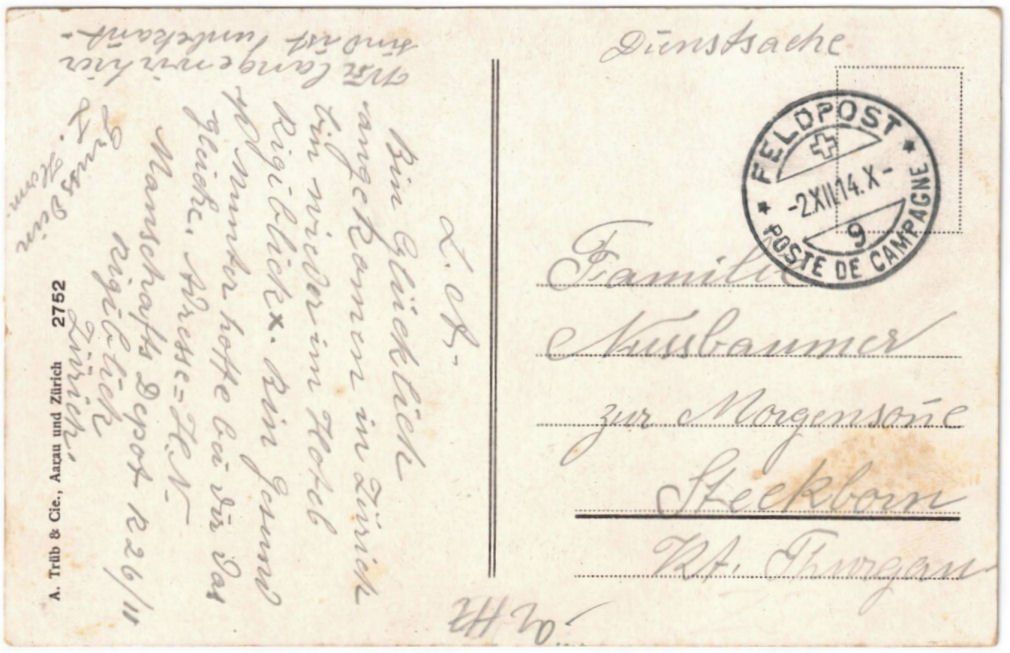 Dienstsache
FELDPOST
-2.XII.14.X-
9
POSTE DE CAMPAGNE
Familie
Nussbaumer
zur Morgensoñe
Steckborn
Kt. Thurgau
L. A.
Bin Glücklich
angekomen in Zürich
bin wieder im Hotel
Rigiblick x. Bin gesund
u. munter hoffe bei dir das
gleiche. Adresse = H. N.
Manschafts Depot R 26/II
Rigiblick
Zürich,
Gruss Dein
H.
Wie lange wir hier
sind ist unbekant.
A. Trüb & Cie., Aarau und Zürich 2752